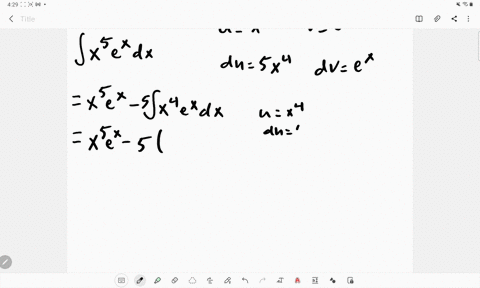 4:29
81%
Title
∫x⁵eˣdx
du = 5x⁴ dv = eˣ
= x⁵eˣ - 5∫x⁴eˣdx u = x⁴
du =
= x⁵eˣ - 5(